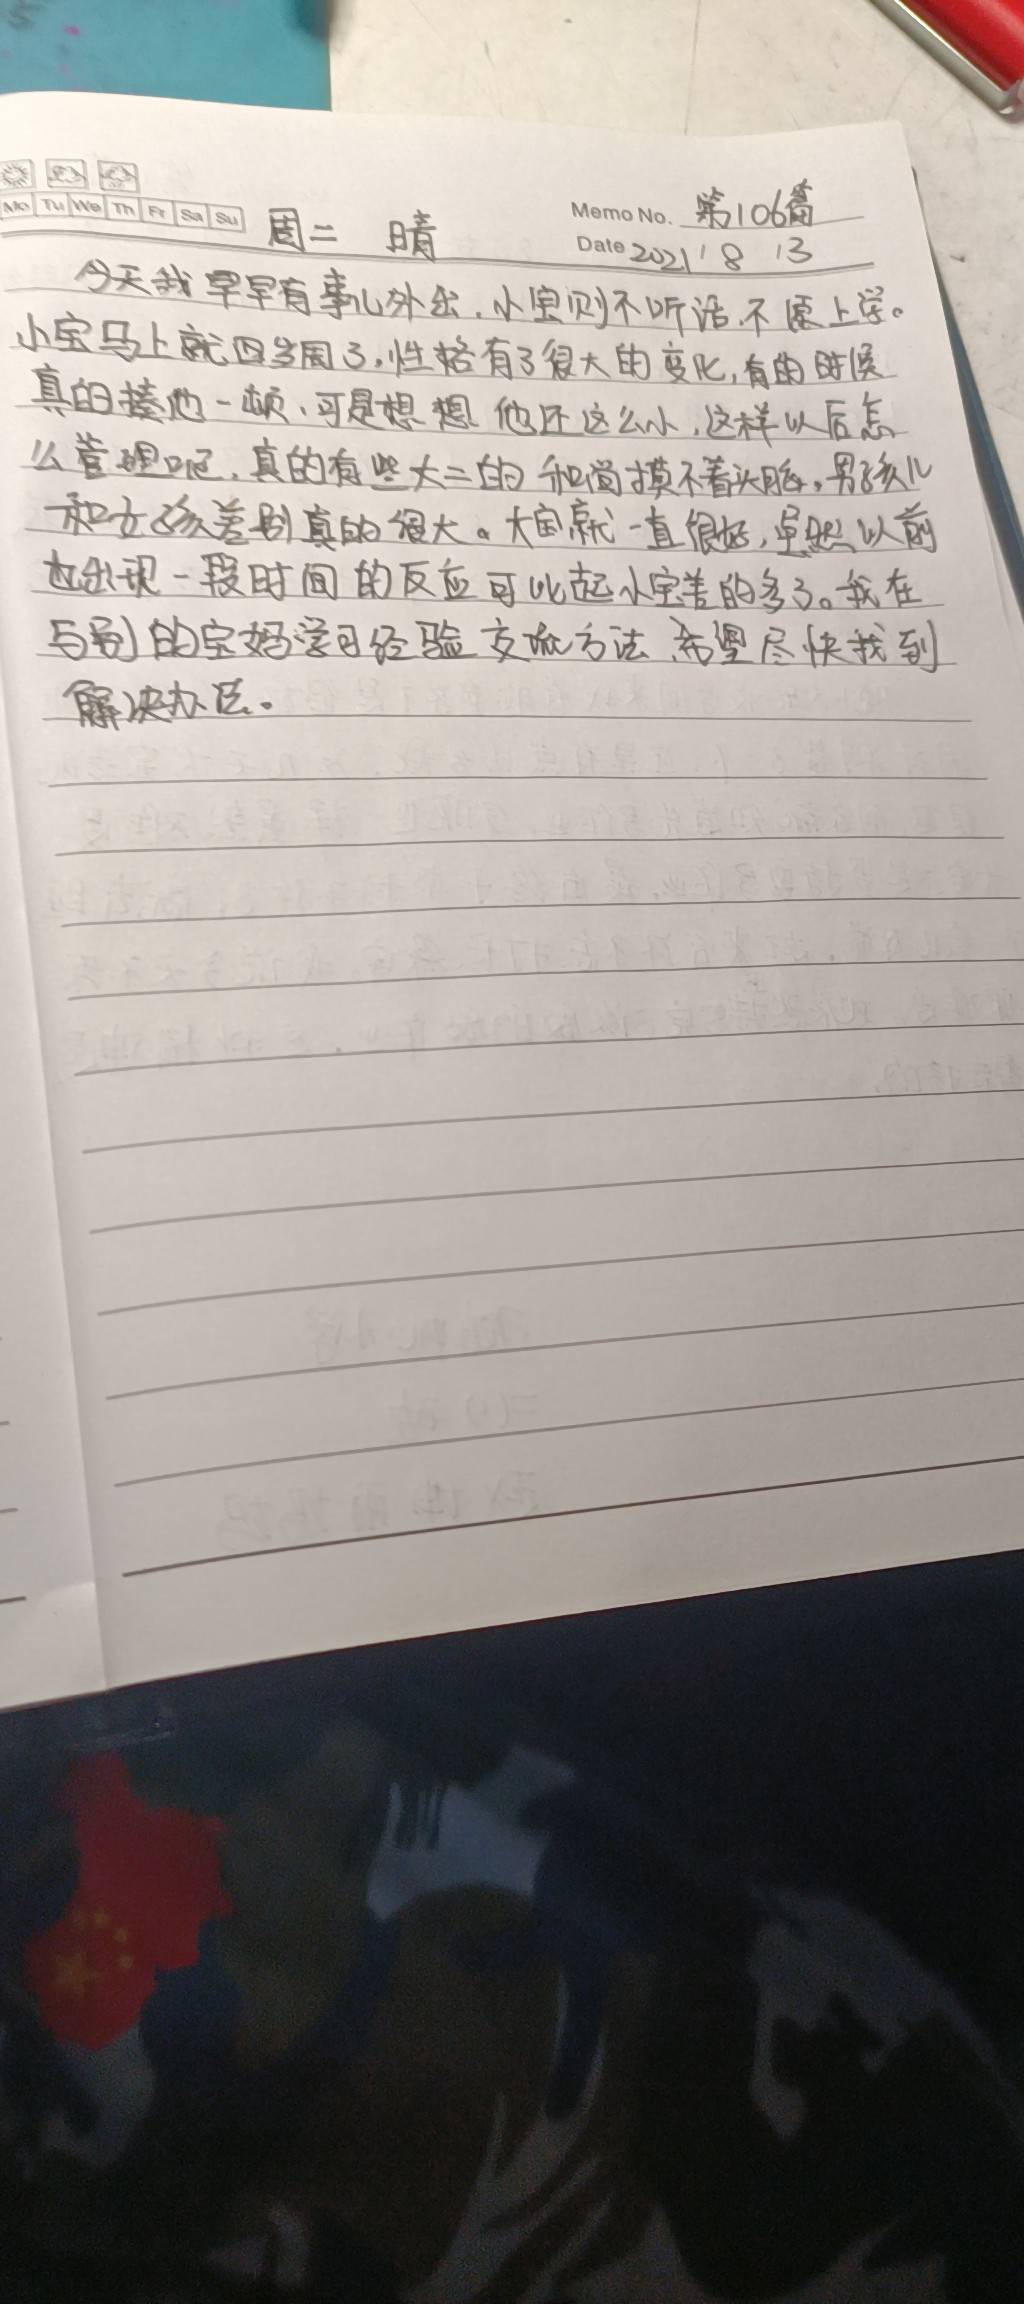 Mo Tu We Th Fr Sa Su
周二 晴
Memo No. 第106篇
Date 2021 8 13
今天我早早有事儿外出,小宝则不听话,不愿上学。
小宝马上就四岁周了,性格有了很大的变化,有的时候
真的揍他一顿,可是想想他还这么小,这样以后怎
么管理呢,真的有些大二的和尚摸不着头脑,男孩儿
和女孩差别真的很大。大宝就一直很好,虽然以前
也出现一段时间的反应可比起小宝差的多了。我在
与别的宝妈学习经验交流方法,希望尽快找到
解决办法。